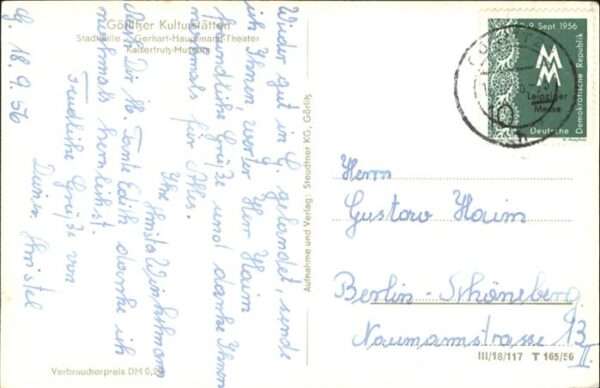 Görlitzer Kulturstätten
Stadthalle - Gerhart-Hauptmann-Theater
Kaisertrutz-Museum
G. 18.9.56
Wieder gut in G. gelandet, sende
ich Ihnen, werter Herr Haim
freundliche Grüße und danke Ihnen
nochmals für Alles.
Ihre
Auch Dir lb. Tante Edith danke ich
nochmals herzlichst.
Friedliche Grüße von
Christel
Verbraucherpreis DM
Aufnahme und Verlag: Steudtner KG, Görlitz
9. Sept. 1956
MM
Leipziger
Messe
Deutsche Demokratische Republik
Herrn
Gustav Haim
Berlin-Schöneberg
Naumannstrasse 13
II.
III/18/117 T 165/56